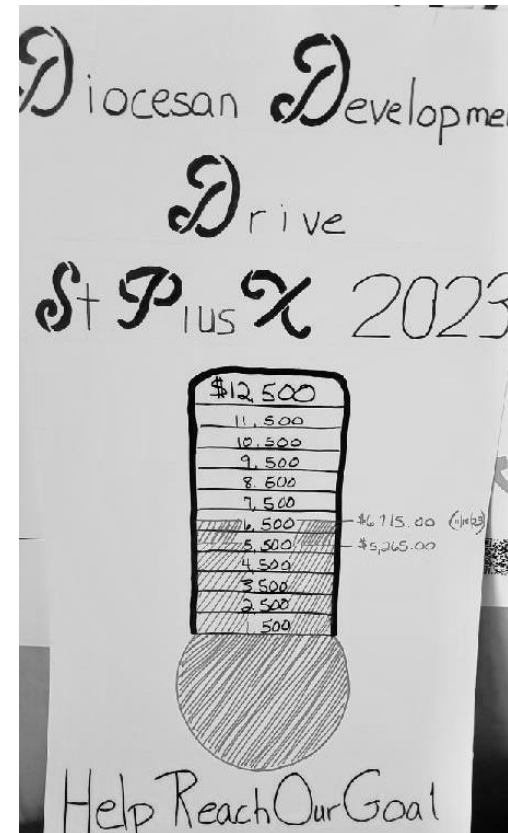 Diocesan Developme
Drive
St Pius X 2023
$12,500
11,500
10,500
9,500
8,500
7,500
6,500
5,500
4,500
3,500
2,500
1,500
$6,715.00 (11/10/23)
$5,265.00
Help Reach Our Goal